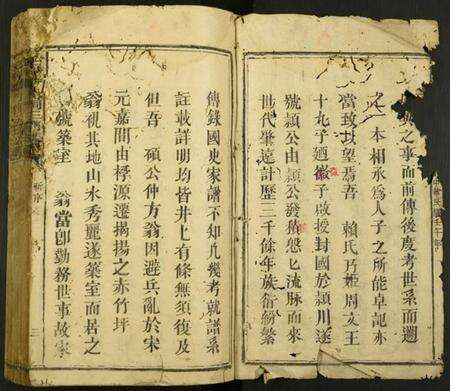 之事而前傳後度考世系而遡
之一本相承為人子之所能卓記亦
當致以望焉吾 賴氏乃姬周文王
十九子廼徽子啟授封國於潁川遂
號潁公由潁公發積悠乚流脉而來
世代肇遠計歷三千餘年族衍紛繁
傳錄國史家譜不知凡幾考就譜系
註載詳明均皆井上有條無須復及
但吾 碩公仲方翁因避兵亂於宋
元嘉間由樗源遷揭揚之赤竹坪
翁視其地山水秀麗遂築室而居之
號築室 翁當卽勤務世事故家
三